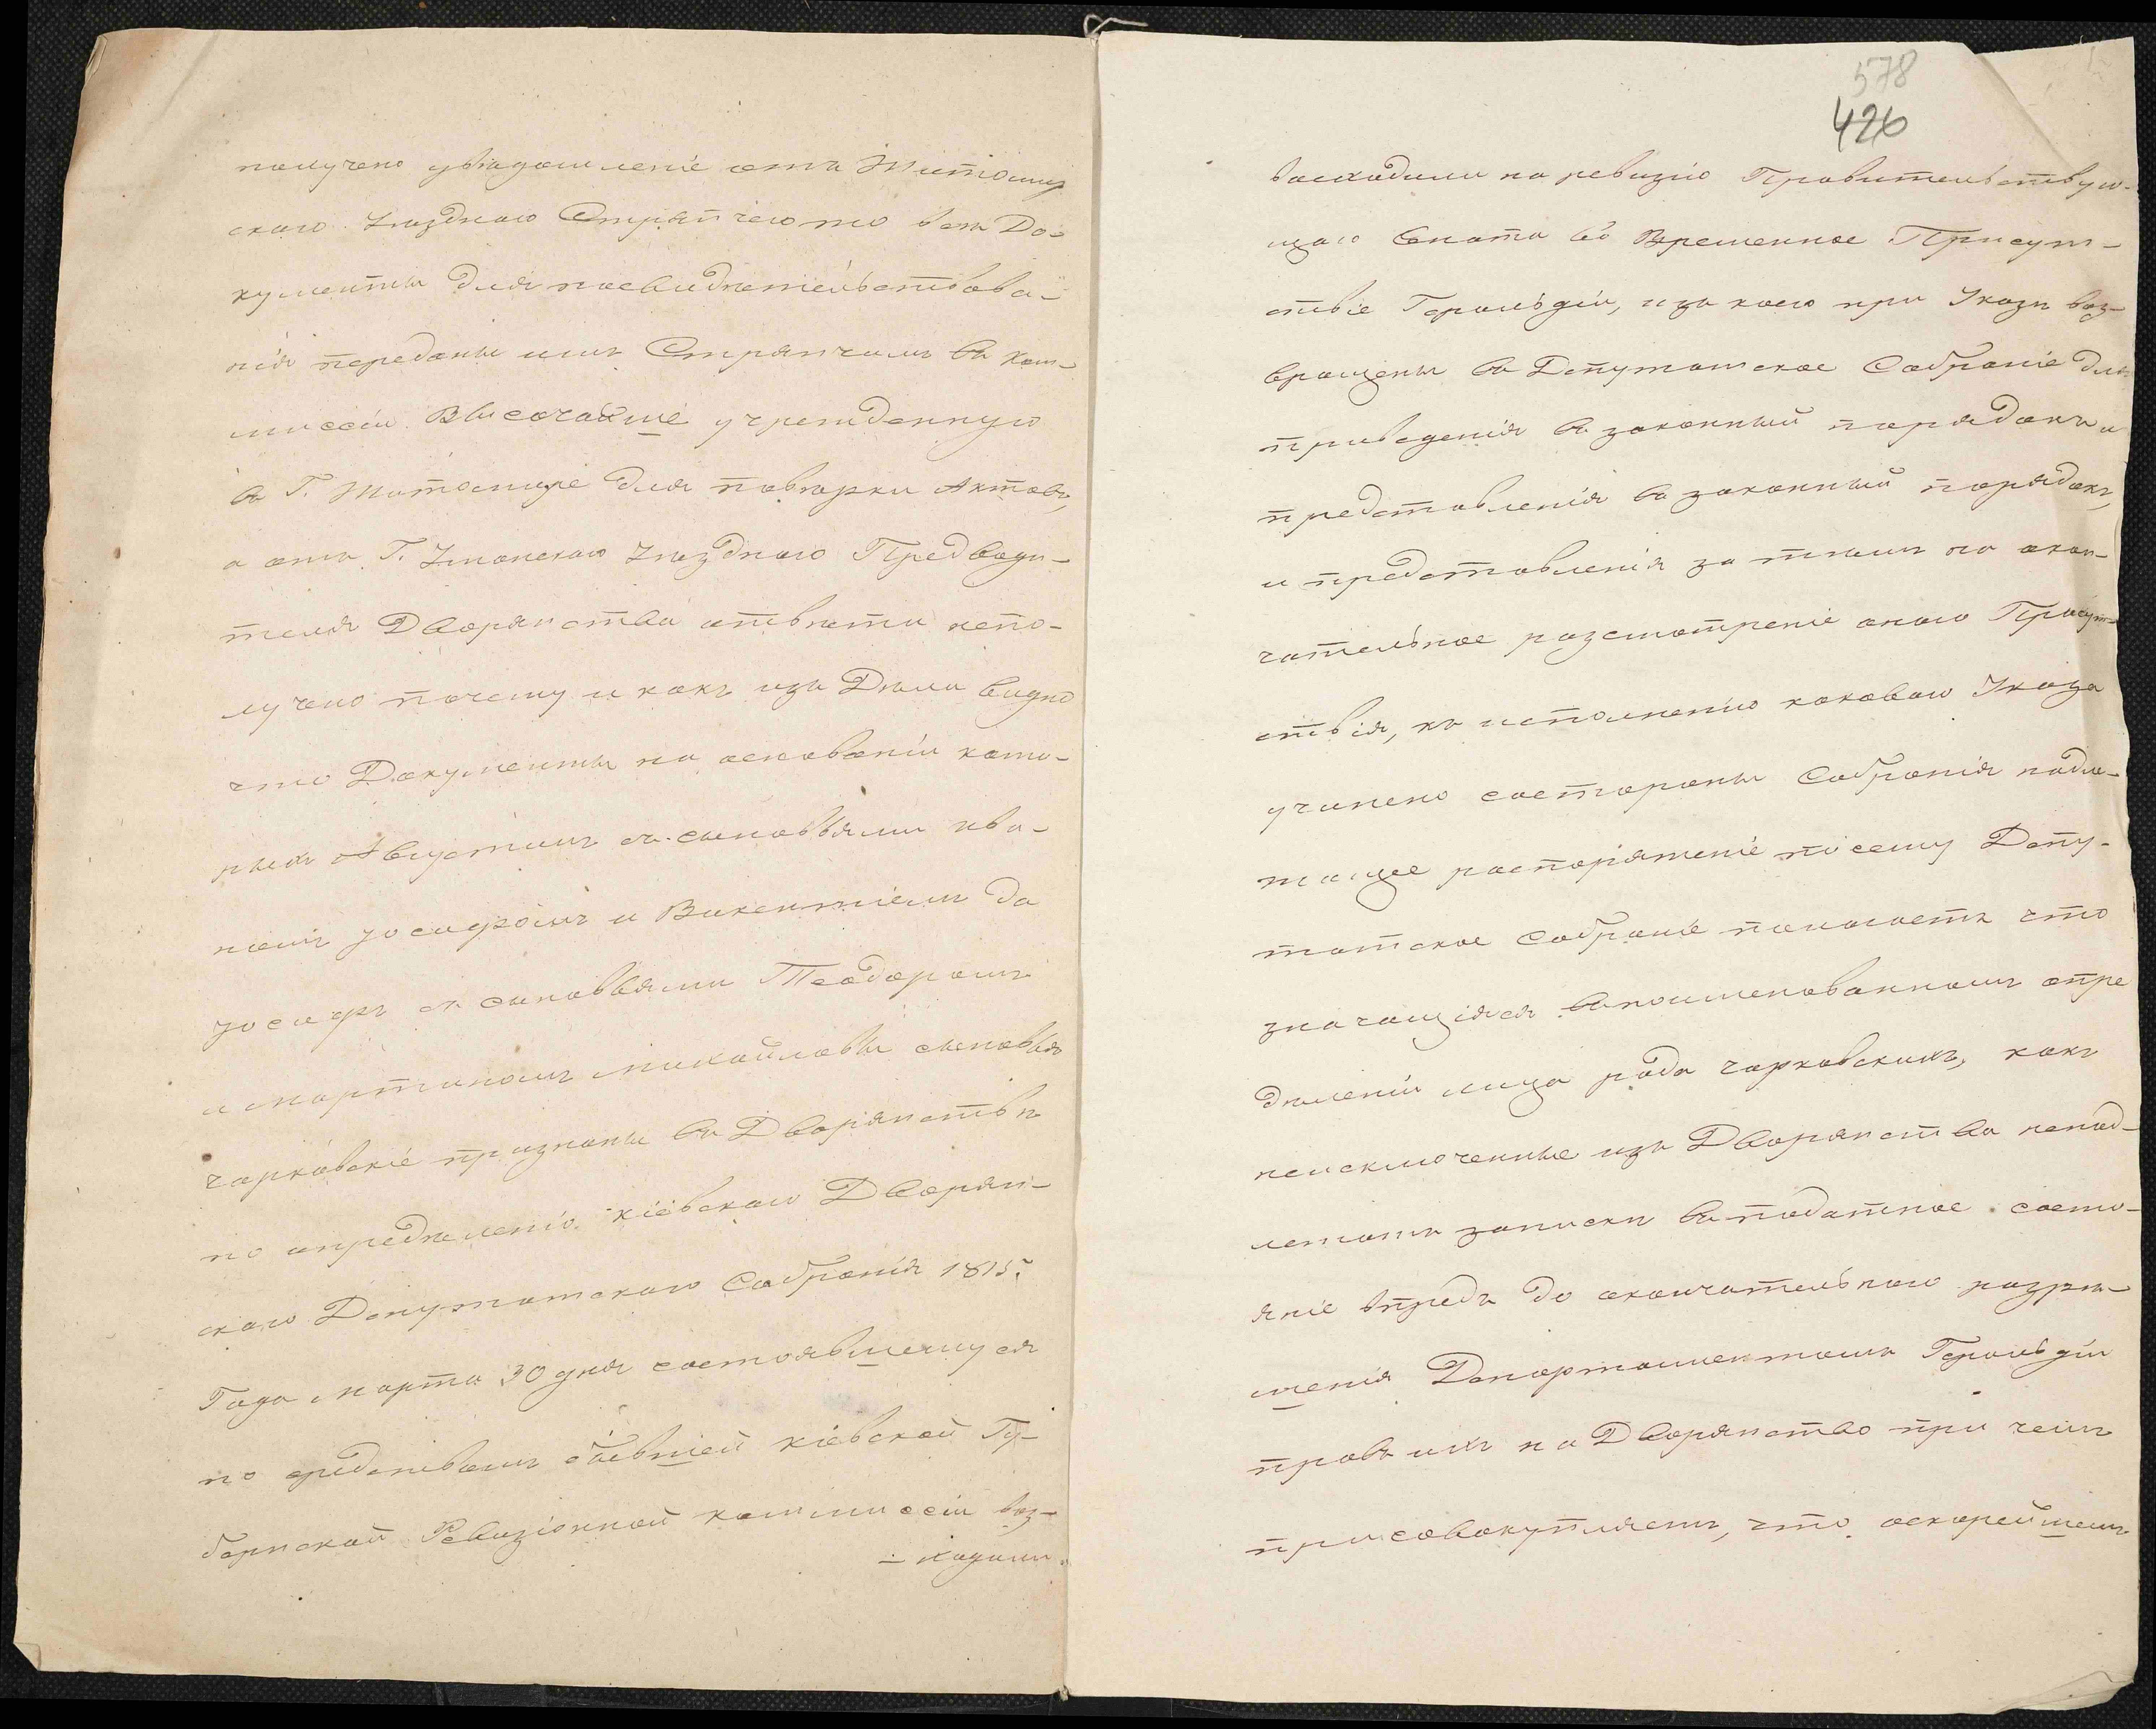 получено увѣдомленіе отъ Житомир
скаго Уѣзднаго Стряпчего что всѣ До-
кументы для посвидѣтельствова-
нія переданы имъ Стряпчимъ въ Ком-
миссіи Высочайше учрежденную
въ Г. Житомире для повѣрки Актовъ,
а отъ Г. Уманскаго Уѣзднаго Предводи-
теля Дворянства отвѣта непо-
лучено почему и какъ изъ Дѣла видно
что Документы на основаніи кото-
рыхъ Августинъ съ сыновьями Ива-
номъ Іосифомъ и Викентіемъ да
Іосифъ съ сыновьями Теодоромъ
и Мартиномъ Михайловы сыновья
Чарковскіе признаны въ Дворянствѣ
по определенію Кіевскаго Дворян-
скаго Депутатскаго Собранія 1815
Года Марта 30 дня состоявшемуся
по средствомъ бывшей Кіевской Гу-
бернской Ревизіонной Коммиссіи вос-
- ходили
578
426
восходили на ревизію Правительствую-
щаго Сената въ Временное Присут-
ствіе Герольдіи, изъ коего при Указѣ воз-
вращены въ Депутатское Собраніе для
приведенія въ законный порядокъ и
представленія въ законный порядокъ,
и представленія за тѣмъ на окон-
чательное разсмотреніе онаго Присут-
ствія, къ исполненію каковаго Указа
учинено состороны Собранія надле-
жащее распоряженіе по сему Депу-
татское Собраніе полагаетъ что
значащіяся въ поименованномъ опре
дѣленіи лица рода Чарковскихъ, какъ
неисключенные изъ Дворянства непод-
лежатъ запискѣ въ податное состо-
яніе впредь до окончательнаго разрѣ-
шенія Департаментомъ Герольдіи
правъ ихъ на Дворянство при чемъ
присовокупляетъ, что оскорейшемъ